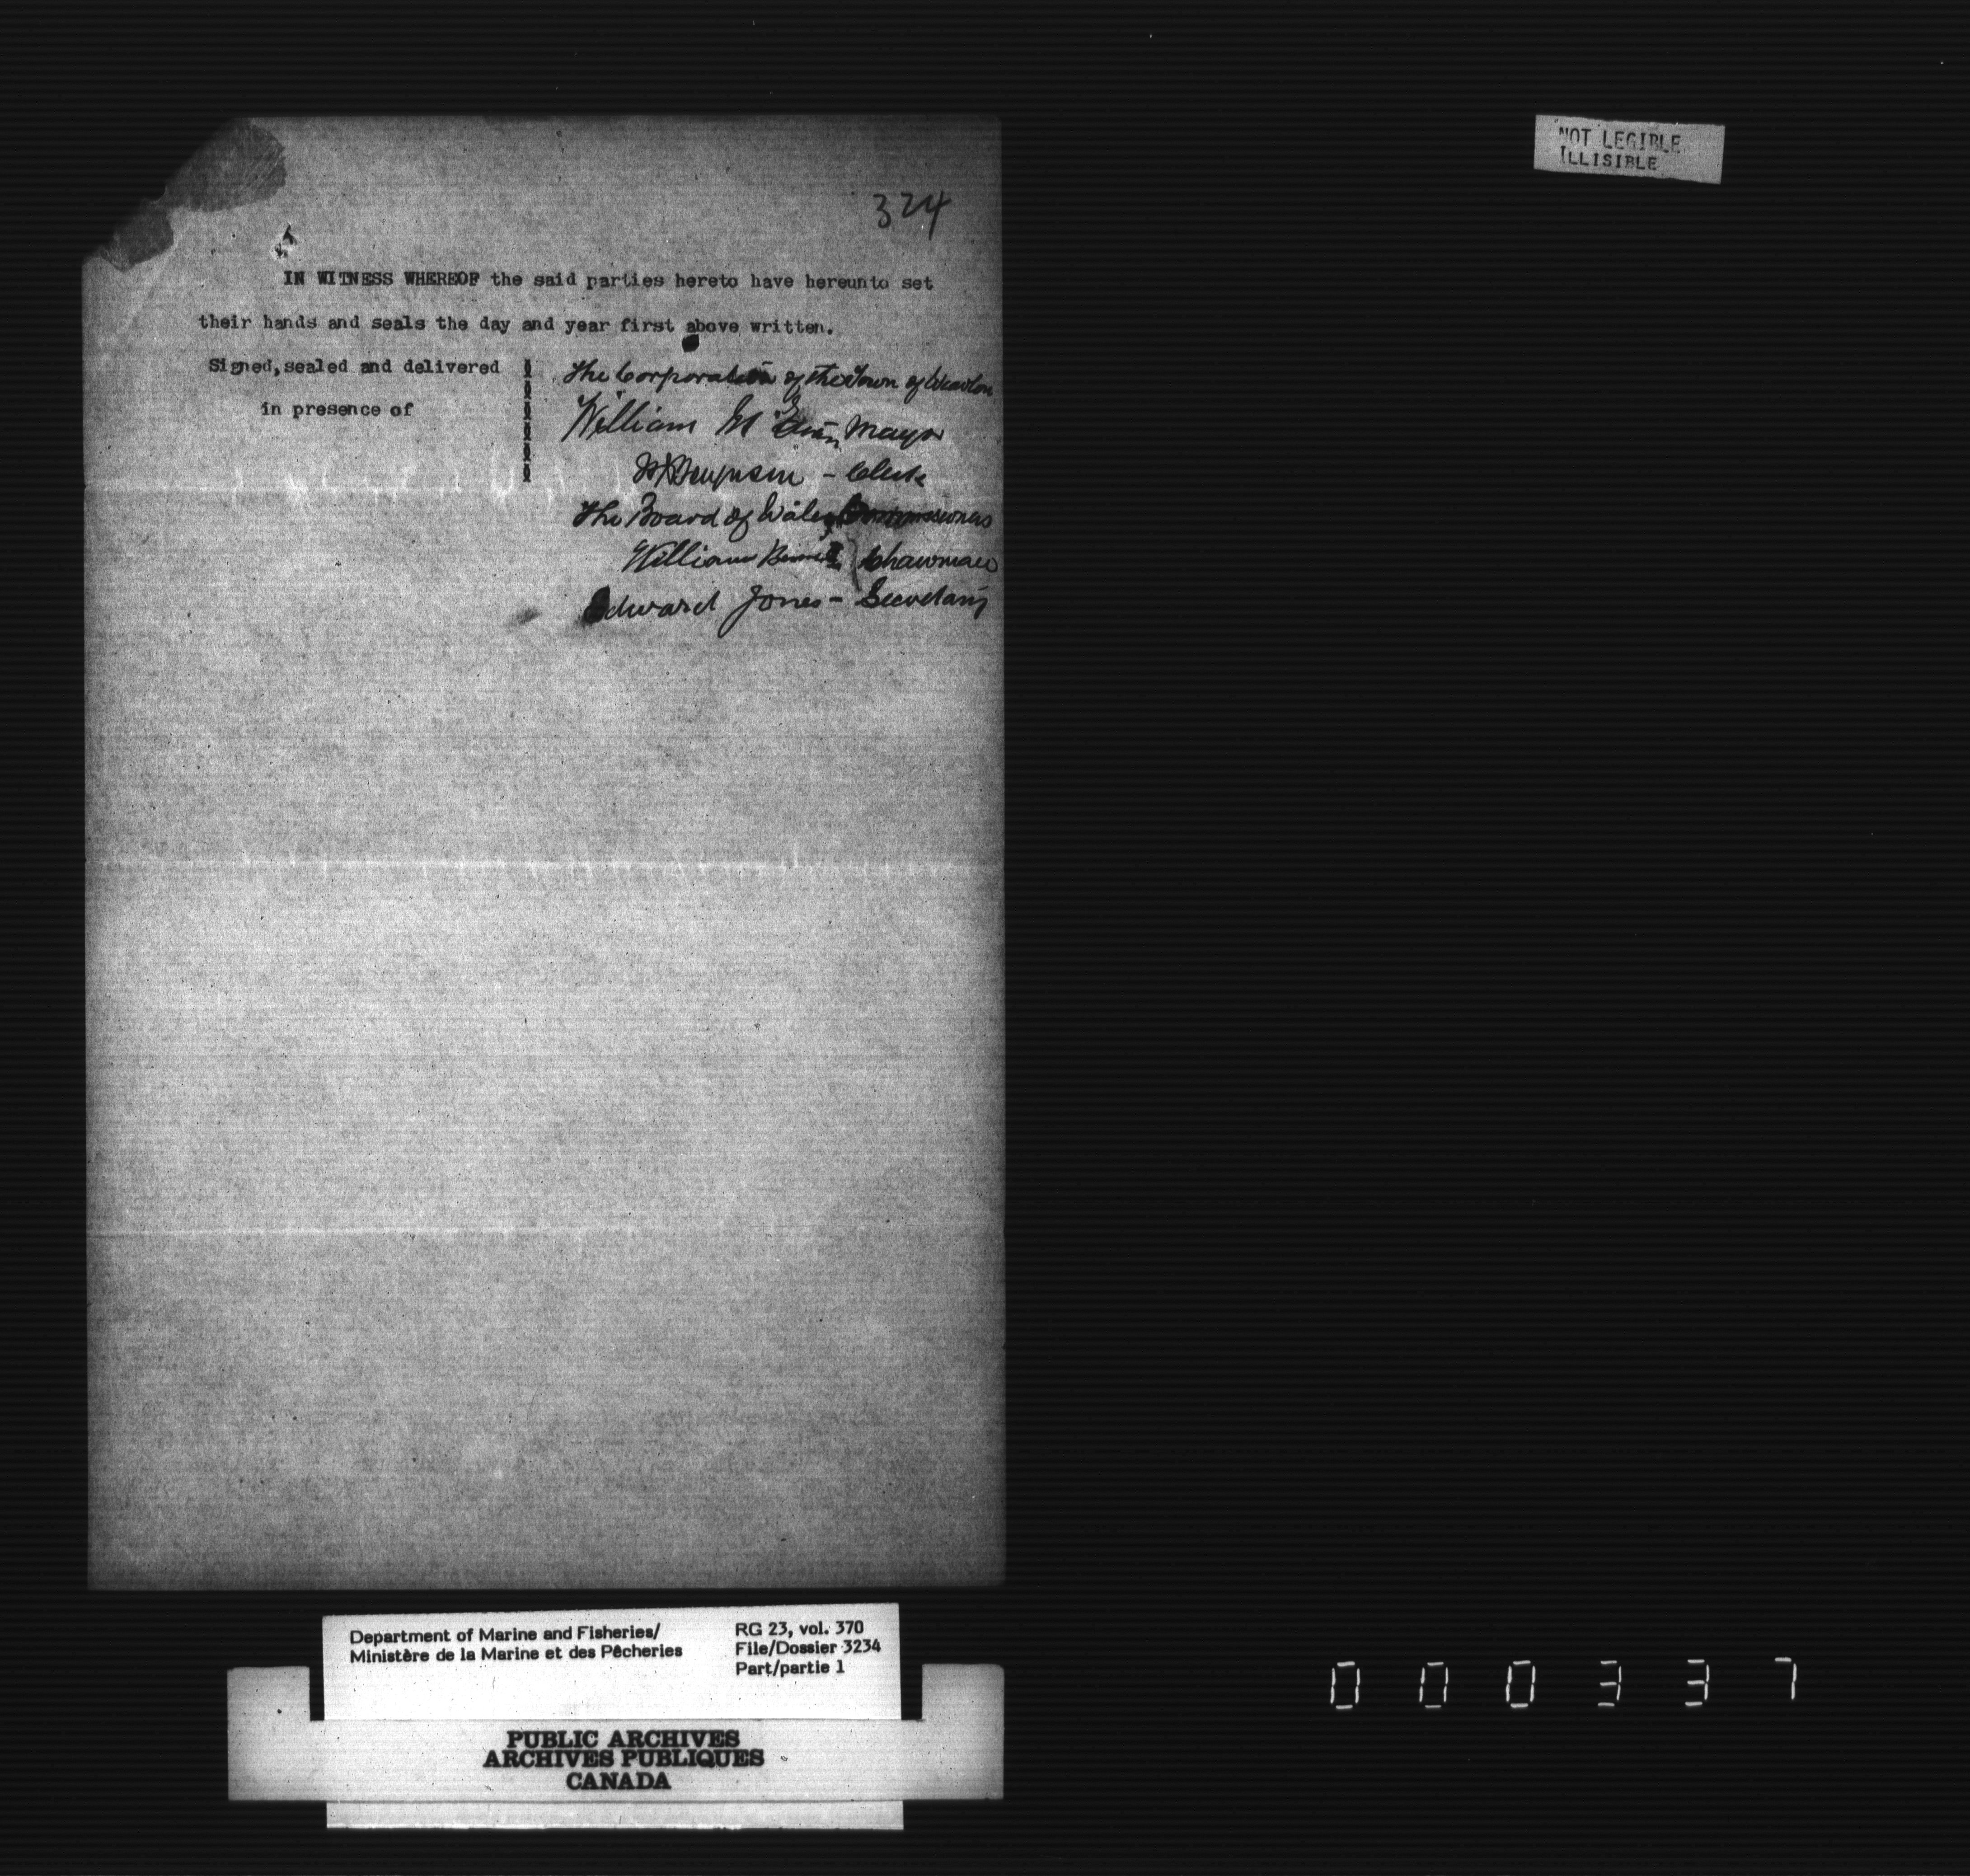 NOT LEGIBLE
ILLISIBLE
324
IN WITNESS WHEREOF the said parties hereto have hereunto set
their hands and seals the day and year first above written.
Signed, sealed and delivered
in presence of
The Corporation of the Town of Wiarton
William Mayor
- Clerk
The Board of Water Commissioners
William Chairman
Edward Jones - Secretary
Department of Marine and Fisheries/
Ministère de la Marine et des Pêcheries
RG 23, vol. 370
File/Dossier 3234
Part/partie 1
PUBLIC ARCHIVES
ARCHIVES PUBLIQUES
CANADA
000337